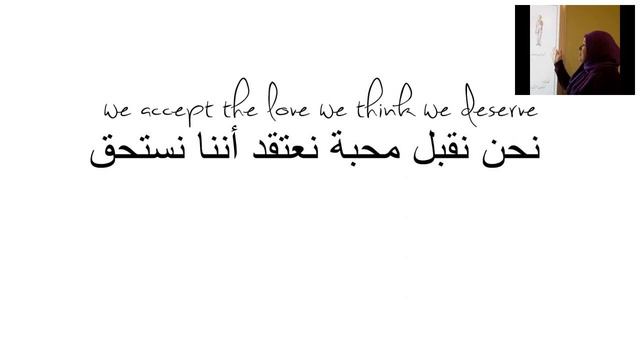 we accept the love we think we deserve
نحن نقبل محبة نعتقد أننا نستحق